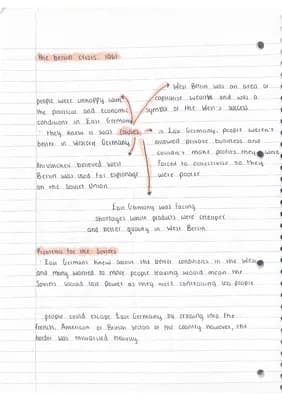 The Berlin Crisis, 1961
West Berlin was an area of
capitalist wealth and was a
symbol of the West's success
people were unhappy with
the political and economic
conditions in East Germany
they knew it was
better in Western Germany
causes
in East Germany, people weren't
allowed private business and
couldn't make profits, they were
forced to collectivise so they
were poorer
Khrushchev believed West
Berlin was used for espionage
on the Soviet Union
East Germany was facing
shortages while products were cheaper
and better quality in West Berlin
Problems for the Soviets
East Germans knew about the better conditions in the West
and many wanted to move people leaving would mean the
Soviets would lose power as they were controlling less people
people could escape East Germany by crossing into the
French, American or British sector of the country however, the
border was militarised heavily